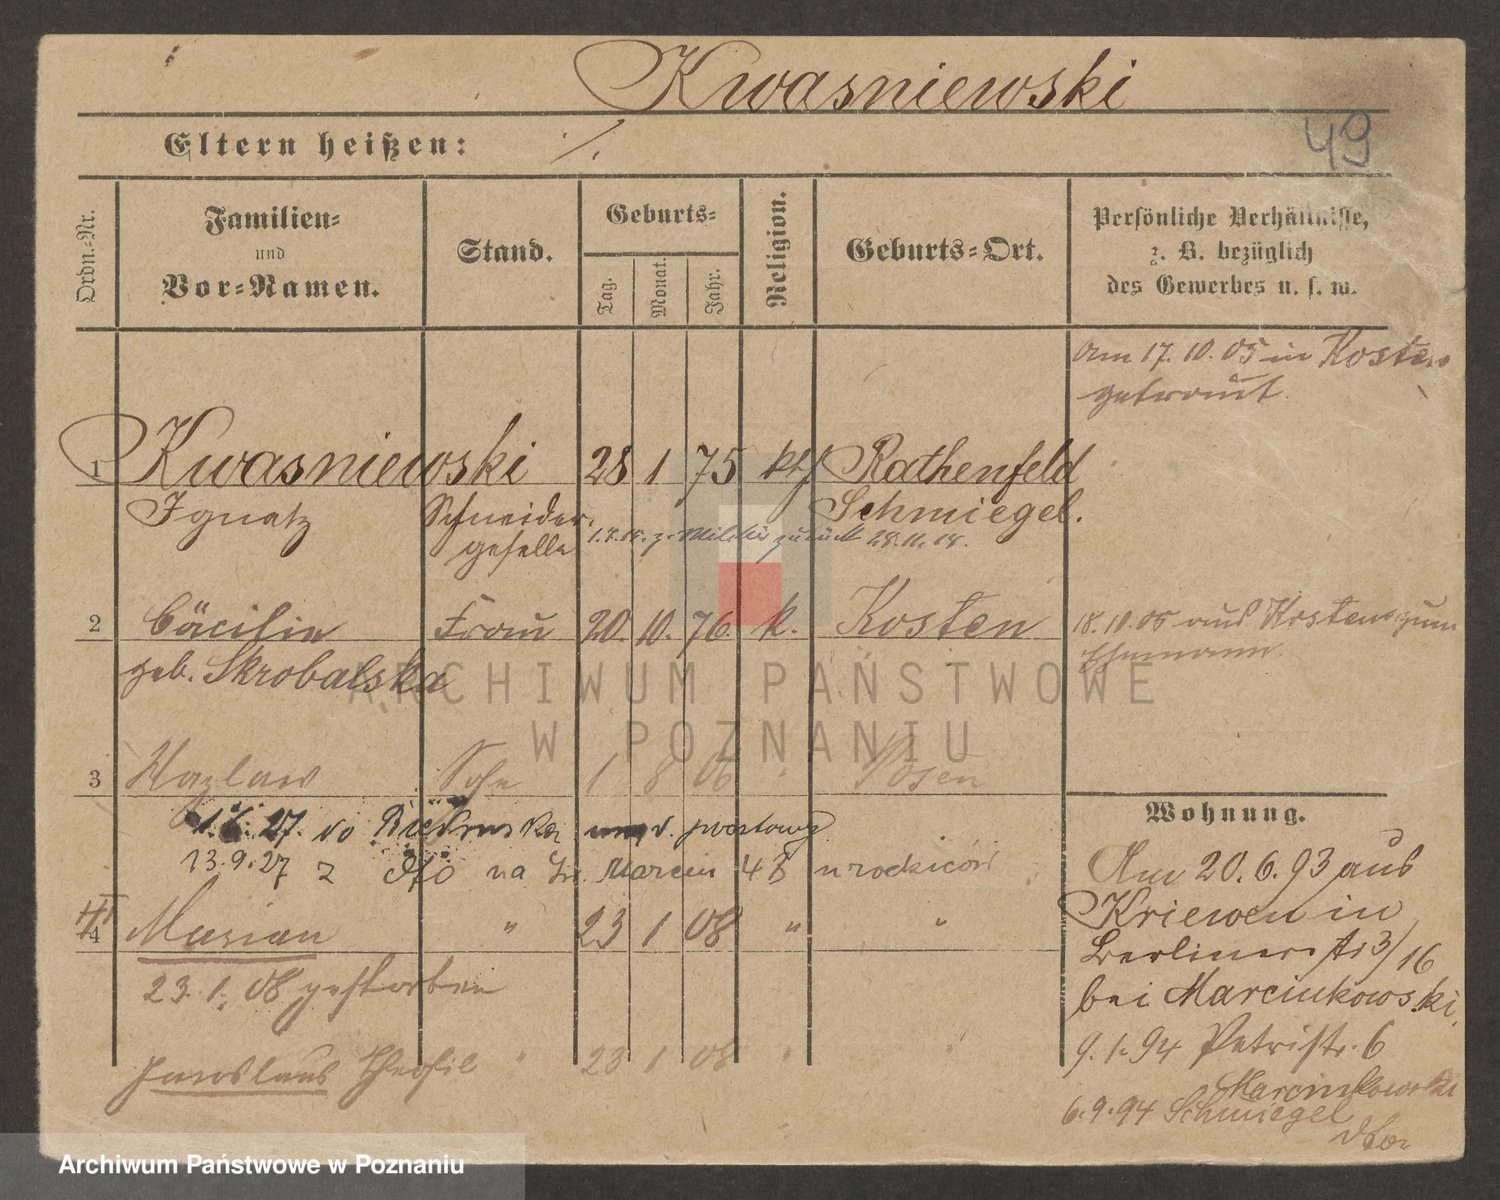 Kwasniewski
49
Eltern heißen: ./.
Ordn.-Nr.
Familien-
und
Vor-Namen.
Stand.
Geburts-
Tag.
Monat.
Jahr.
Religion.
Geburts-Ort.
Persönliche Verhältnisse,
z. B. bezüglich
des Gewerbes u. s. w.
am 17. 10. 05 in Kosten
getraut.
1 Kwasniewski 28 1 75 kth Rathenfeld
Ignatz Schneider- Schmiegel.
geselle z. Militär zurück 28.11.18.
2 Cäcilie Frau 20. 10. 76. k. Kosten
18. 10. 05 aus Kosten zum
Ehemann
geb. Skrobalska
ARCHIWUM PAŃSTWOWE
W POZNANIU
3 Wazlaw Sohn 1 8 06 " Posen
27. do
13.9.27 z na Św. Marcin 48 u rodziców
4 Marian " 23 1 08 " "
23. 1. 08 gestorben
Jaroslaus Theofil " 23 1 08 " "
Wohnung.
Am 20. 6. 93 aus
Kriewen in
Berliner str 3/16
bei Marcinkowski.
9. 1. 94 Petristr. 6
Marcinkowski
6. 9. 94 Schmiegel
Archiwum Państwowe w Poznaniu